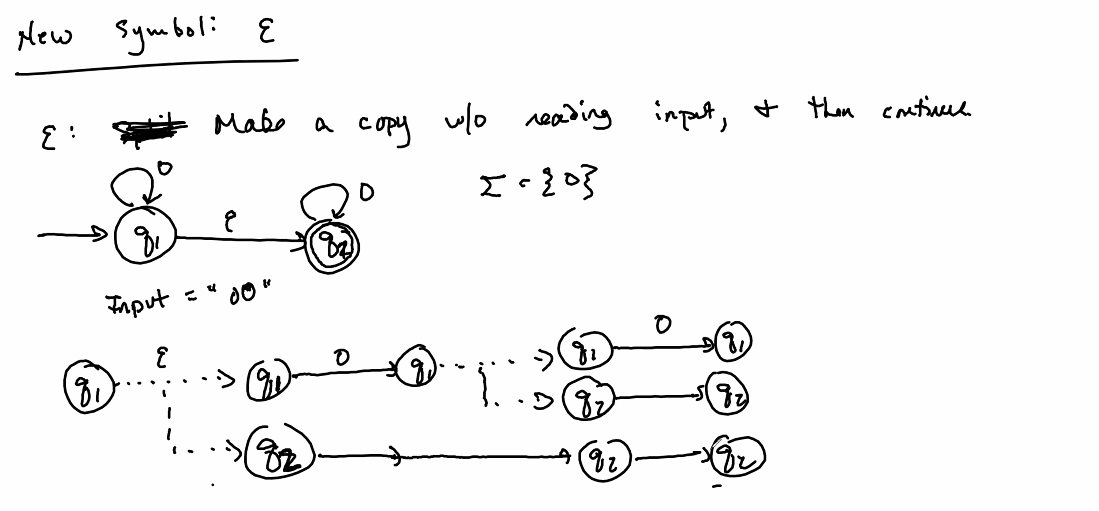 New Symbol: ε
ε: Make a copy w/o reading input, + then continue
0 0
Σ = {0}
q1 ε q2
Input = "00"
ε 0 0
q1 q1 q1 q1 q1
q2 q2
q2 q2 q2